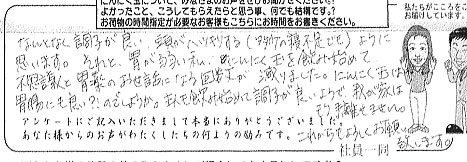 にんにく玉について、みなさまのお声をお聞かせください!!
よかったこと、こうしてもらえたらと思う事、何でも結構です。
お荷物の時間指定が必要なお客様もこちらにお時間をお書きください。
私たちがこころをこ
お届けしています。
なんとなく調子が良い、頭がハッキリする(多少の寝不足でも)ように
思います。それと、胃が弱い方で、にんにく玉を飲み始めて
不思議と胃薬のお世話になる回数が減りました。にんにく玉は
胃腸にも良い?!のでしょうか。主人も飲み始めて調子が良いようで、我が家は
もう離せません。
アンケートにご記入いただきまして本当にありがとうございました。
あなた様からのお声がわたくしたちの何よりの励みです。
これからもよろしくお願い
致します。
社員一同